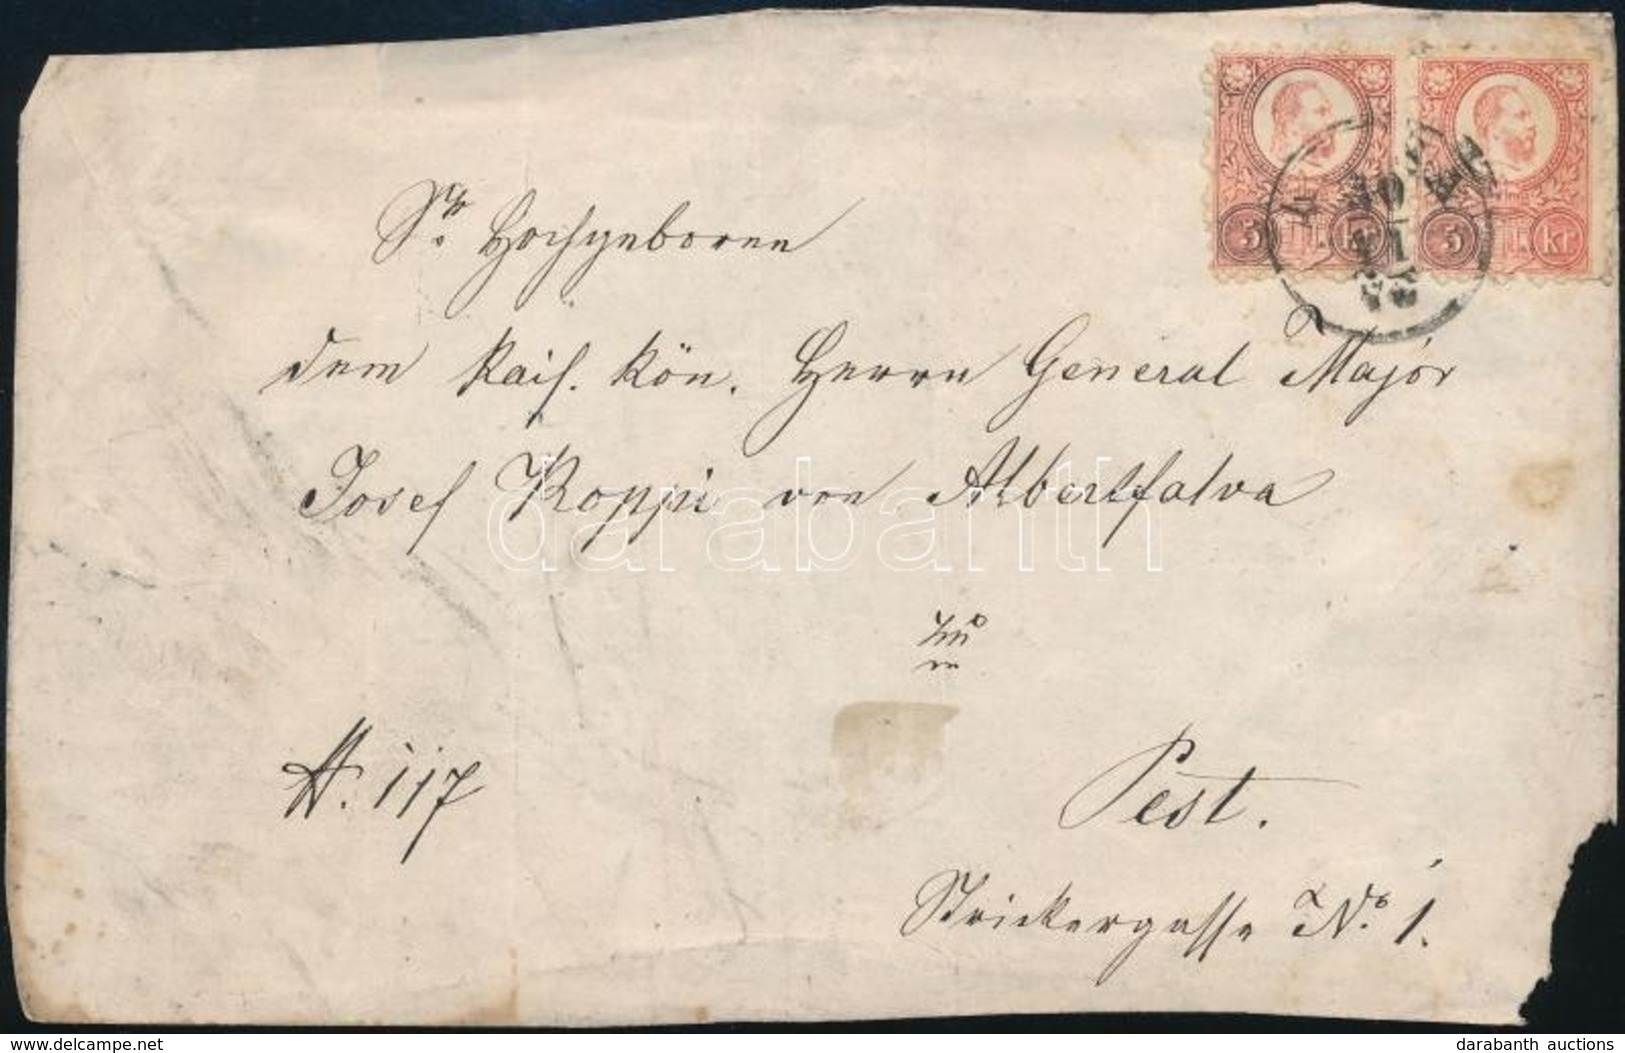 5 kr
5 kr
Sr. Hochgeboren
dem kais. kön. Herrn General Major
Josef Koppi von Albertfalva
darabanth
zu
Pest.
N. 117
Strickergasse No. 1.
www.delcampe.net
darabanth auctions